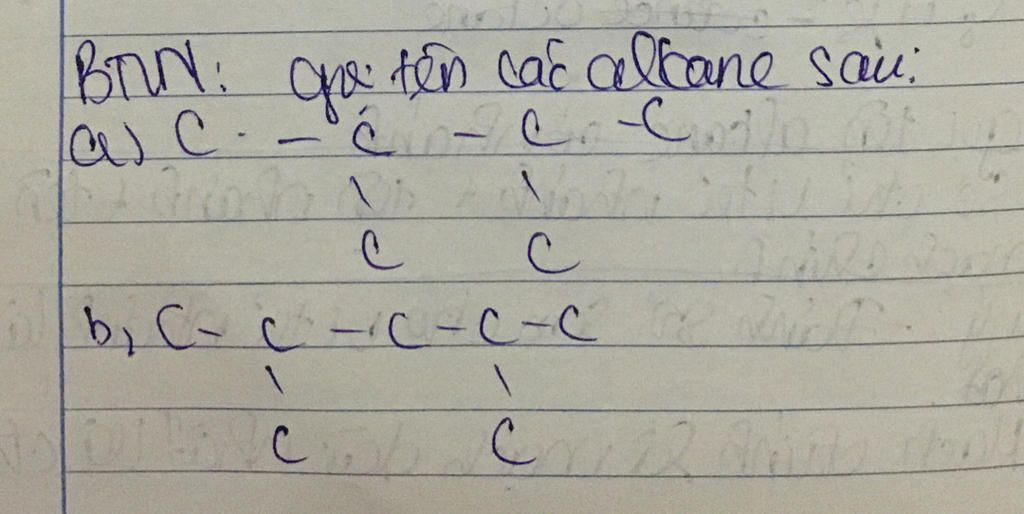 BTVN: gọi tên các alkane sau:
a) C - C - C - C
\ \
C C
b, C - C - C - C - C
\ \
C C